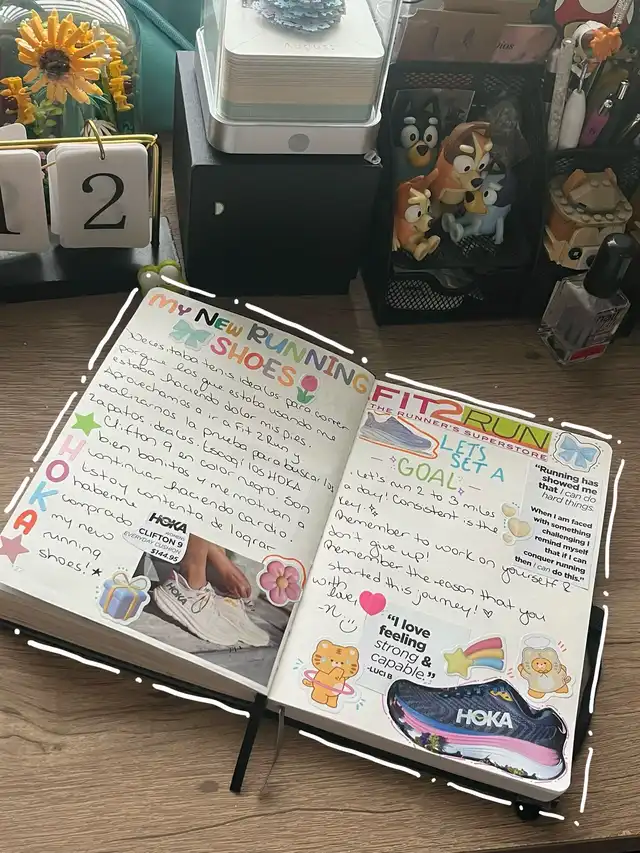 AUGUST
2
MY NEW RUNNING
SHOES
Necesitaba tenis ideales para correr
porque los que estaba usando me
estaba haciendo dolor mis pies.
Aprovechamos a ir a Fit 2 Run y
realizarnos la prueba para buscar los
zapatos ideales. Escogí los HOKA
Clifton 9 en color negro. Son
bien bonitos y me motivan a
continuar haciendo cardio.
Estoy contenta de lograr
haberme
comprado
my new
running
shoes!
HOKA
HOKA
CLIFTON 9
EVERYDAY CUSHION
$144.95
FIT2RUN
THE RUNNER'S SUPERSTORE
LETS
SET A
GOAL
Let's run 2 to 3 miles
a day! Consistent is the
key!
Remember to work on yourself &
don't give up!
Remember the reason that you
started this journey!
with
love,
-n
"Running has
showed me
that I can do
hard things.
When I am faced
with something
challenging I
remind myself
that if I can
conquer running
then I can do this."
"I love
feeling
strong &
capable."
-LUCI B
HOKA